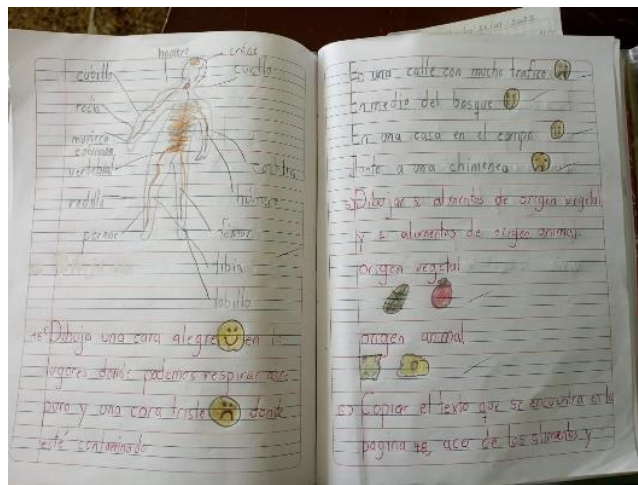 hombro
cráneo
cuello
codillo
codo
muñeca
columna
vertebral
costilla
rodilla
húmero
perone
fémur
tibia
tobillo
Dibuja una cara alegre en lo
lugares donde podemos respirar aire
puro y una cara triste donde
esté contaminado
En una calle con mucho trafico
En medio del bosque
En una casa en el campo
Junto a una chimenea
Dibujar 2 alimentos de origen vegetal
y 2 alimentos de origen animal
origen vegetal
origen animal
Copiar el texto que se encuentra en la
pagina 48, acer de los alimentos y